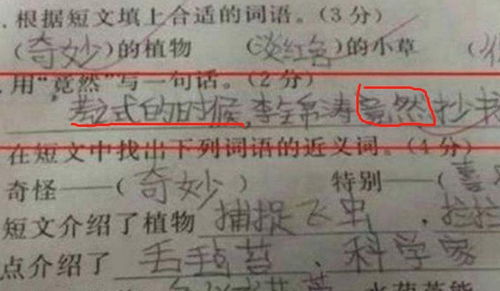 .根据短文填上合适的词语。(3分)
(奇妙)的植物 (淡红色)的小草 (
.用“竟然”写一句话。(2分)
考式的时候,李锦涛竟然抄书
在短文中找出下列词语的近义词。(4分)
奇怪——(奇妙) 特别——(
短文介绍了植物 捕捉飞虫 、
点介绍了 毛毡苔 、科学家